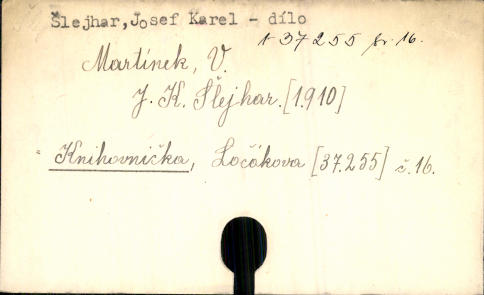 Šlejhar, Josef Karel - dílo
37255 př. 16.
Martínek, V.
J. K. Šlejhar. [1910]
Knihovnička, Ločákova [37.255] č. 16.